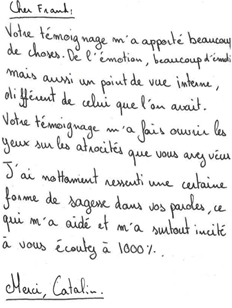 Cher Frank:
Votre témoignage m'a apporté beaucoup
de choses. De l'émotion, beaucoup d'émoti
mais aussi un point de vue interne,
différent de celui que l'on avait.
Votre témoignage m'a fais ouvrir les
yeux sur les atrocités que vous avez vécus
J'ai nottament ressenti une certaine
forme de sagesse dans vos paroles, ce
qui m'a aidé et m'a surtout incité
à vous écoutez à 1000%.
Merci, Catalin.